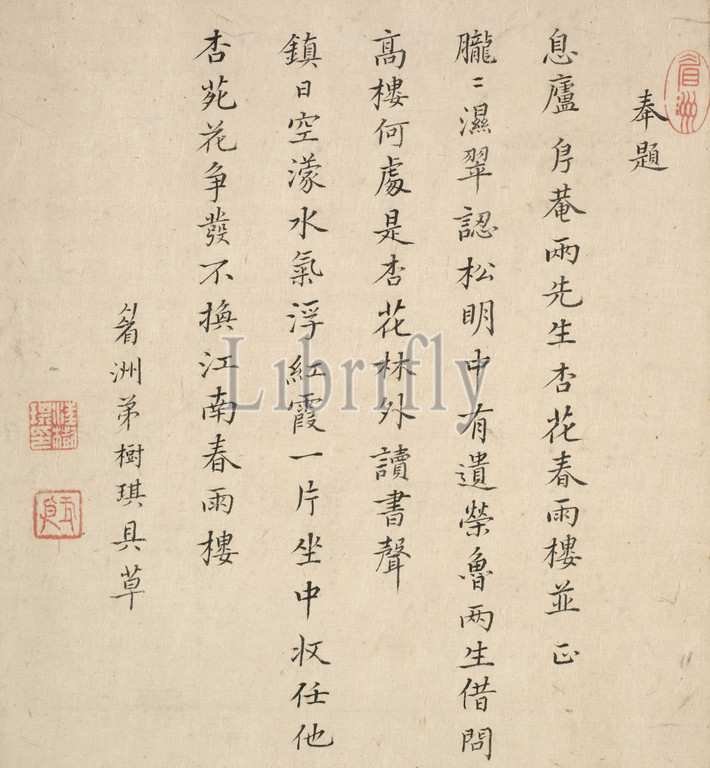 奉題
息廬 菴兩先生杏花春雨樓並正
朧〻濕翠認松明中有遺榮魯两生借問
高樓何處是杏花林外讀書聲
鎮日空濛水氣浮紅霞一片坐中收任他
杏苑花争發不換江南春雨樓
洲弟樹琪具草
Librifly